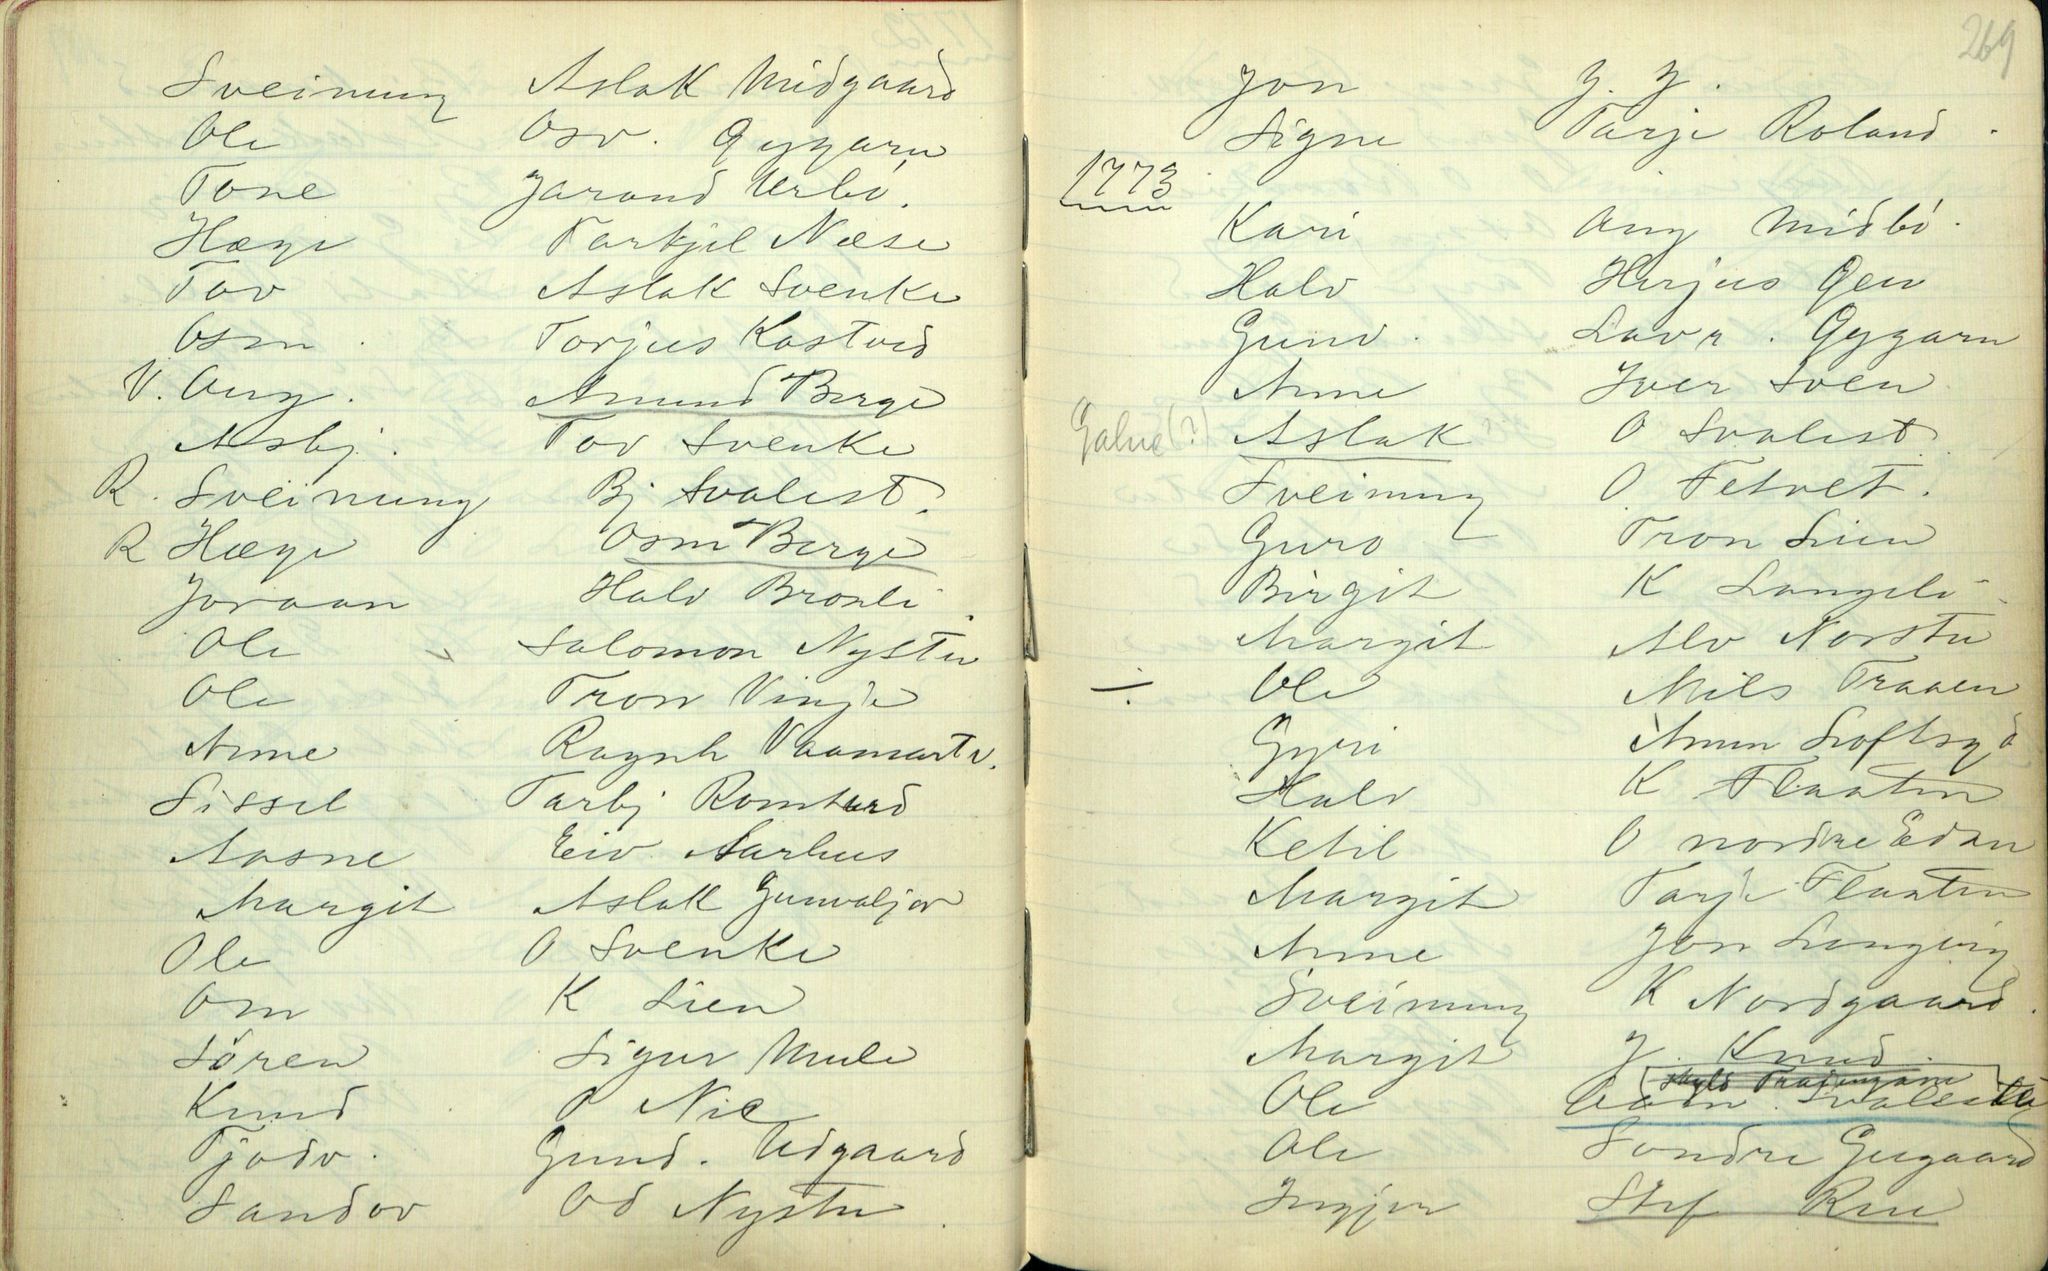 Sveinung Aslak Midgaard
Ole Osv. Gyggarn
Tone Jarand Urbö.
Hæge Tarkjel Næse
Tov Aslak Svenke
Osm. Torjus Kostved
V. Aug. Amund Berge
Asbj. Tov Svenke
R. Sveinung Bj Svalest.
R Hæge Osm Berge
Joraan Halv Brovli.
Ole Salomon Nystu
Ole Tron Vinje
Anne Ragnh Vaamartv.
Sissel Tarbj Romtved
Aasne Eiv. Aarhus
Margit Aslak Gunvaljor
Ole O Svenke
Om K Lien
Sören Sigur Mule
Knud O Nie
Tjodv. Gund. Udgaard
Sandov Od Nystu.
269
Jon J. J.
Signe Tarje Roland.
1773
Kari Aug Midbö.
Halv Herjus Qen
Gunv. Lavr. Gyggarn
Anne Iver Sven
Galne(?) Aslak O Svalest.
Sveinung O Tetvet.
Guro Tron Lien
Birgit K Langeli
Margit Alv Norstu
÷ Ole Nils Traaen
Gyri Amun Loftsgd
Halv K Flaaten
Ketil O nordre Edan
Margit Tarje Flaaten
Anne Jon Lang
Sveinung K Nordgaard.
Margit J. Knud.
Ole Svalest
Ole Sondre Gugaard
Ingjer Stef Rue